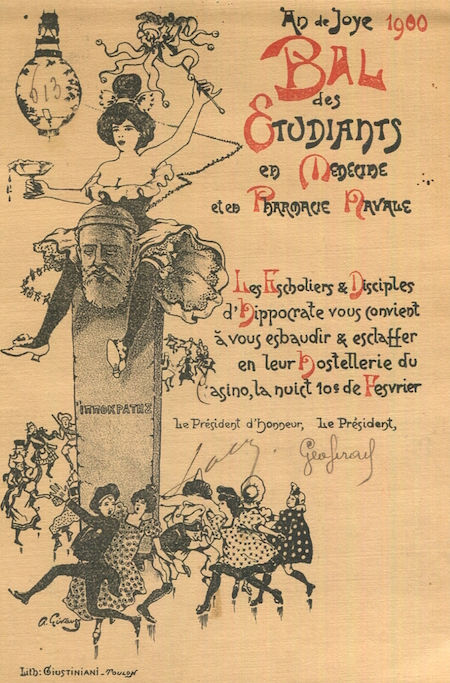 An de Joye 1900
Bal
des
Etudiants
en Medecine
et en Pharmacie Navale
Les Escholiers & Disciples
d'Hippocrate vous convient
à vous esbaudir & esclaffer
en leur Hostellerie du
Casino, la nuict 10e de Fesvrier
Le Président d'honneur, Le Président,
613
ΙΠΠΟΚΡΑΤΗΣ
Lith: Giustiniani - Toulon